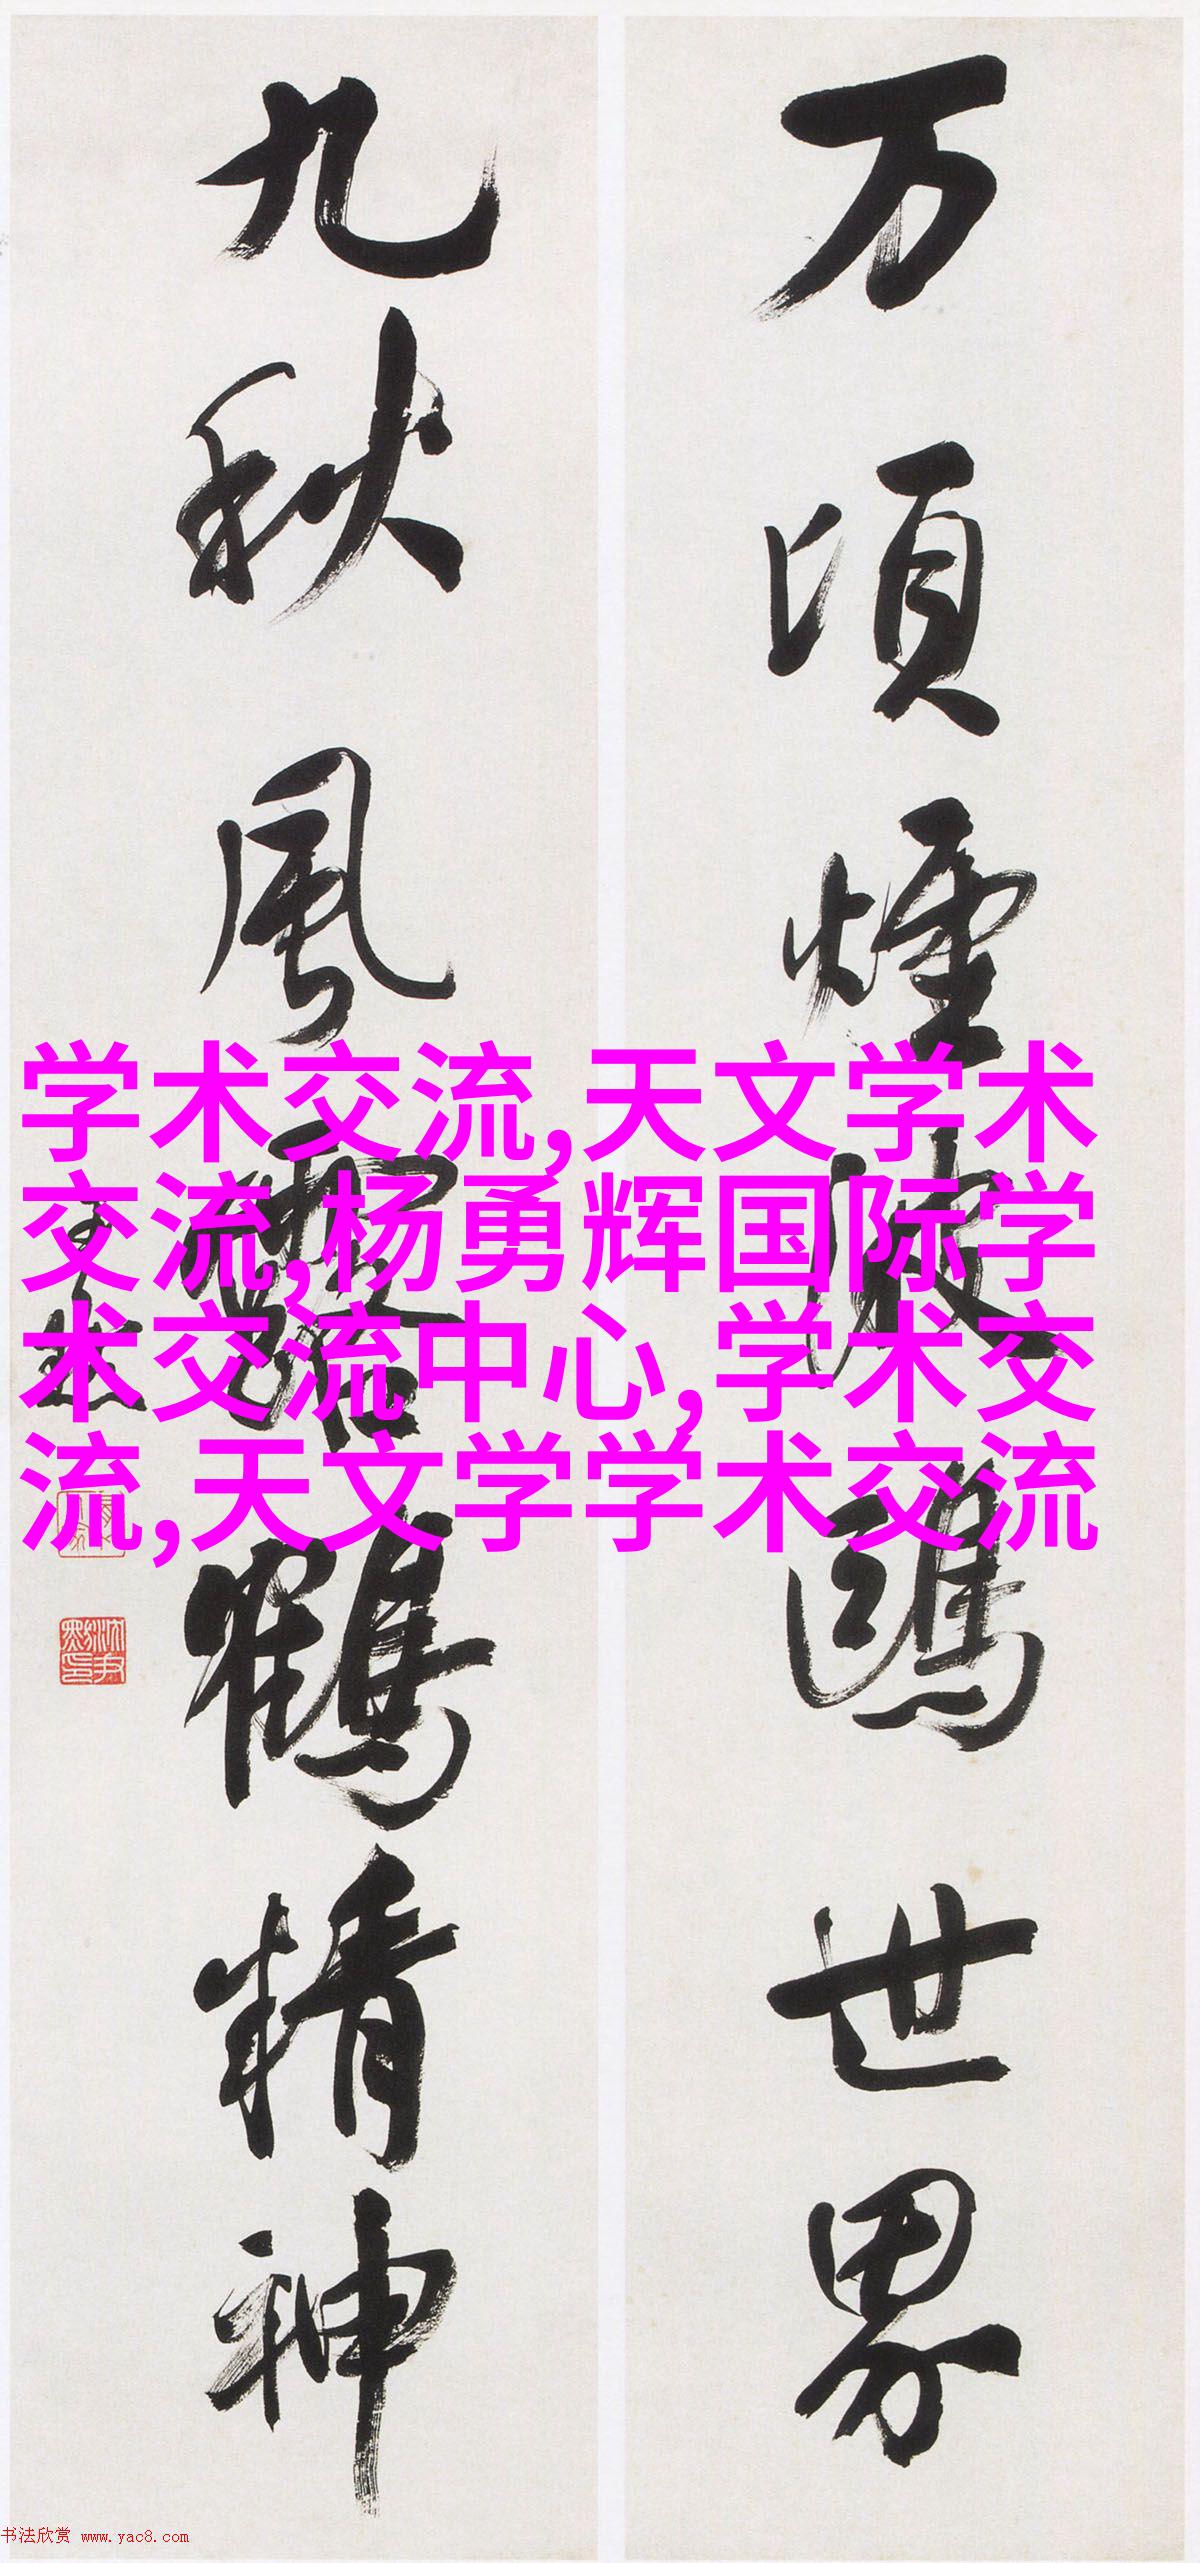 万頃煙波鷗世界
九秋風露鶴精神
尹默
沈尹默印
学术交流,天文学术
交流,杨勇辉国际学
术交流中心,学术交
流,天文学学术交流
书法欣赏 www.yac8.com